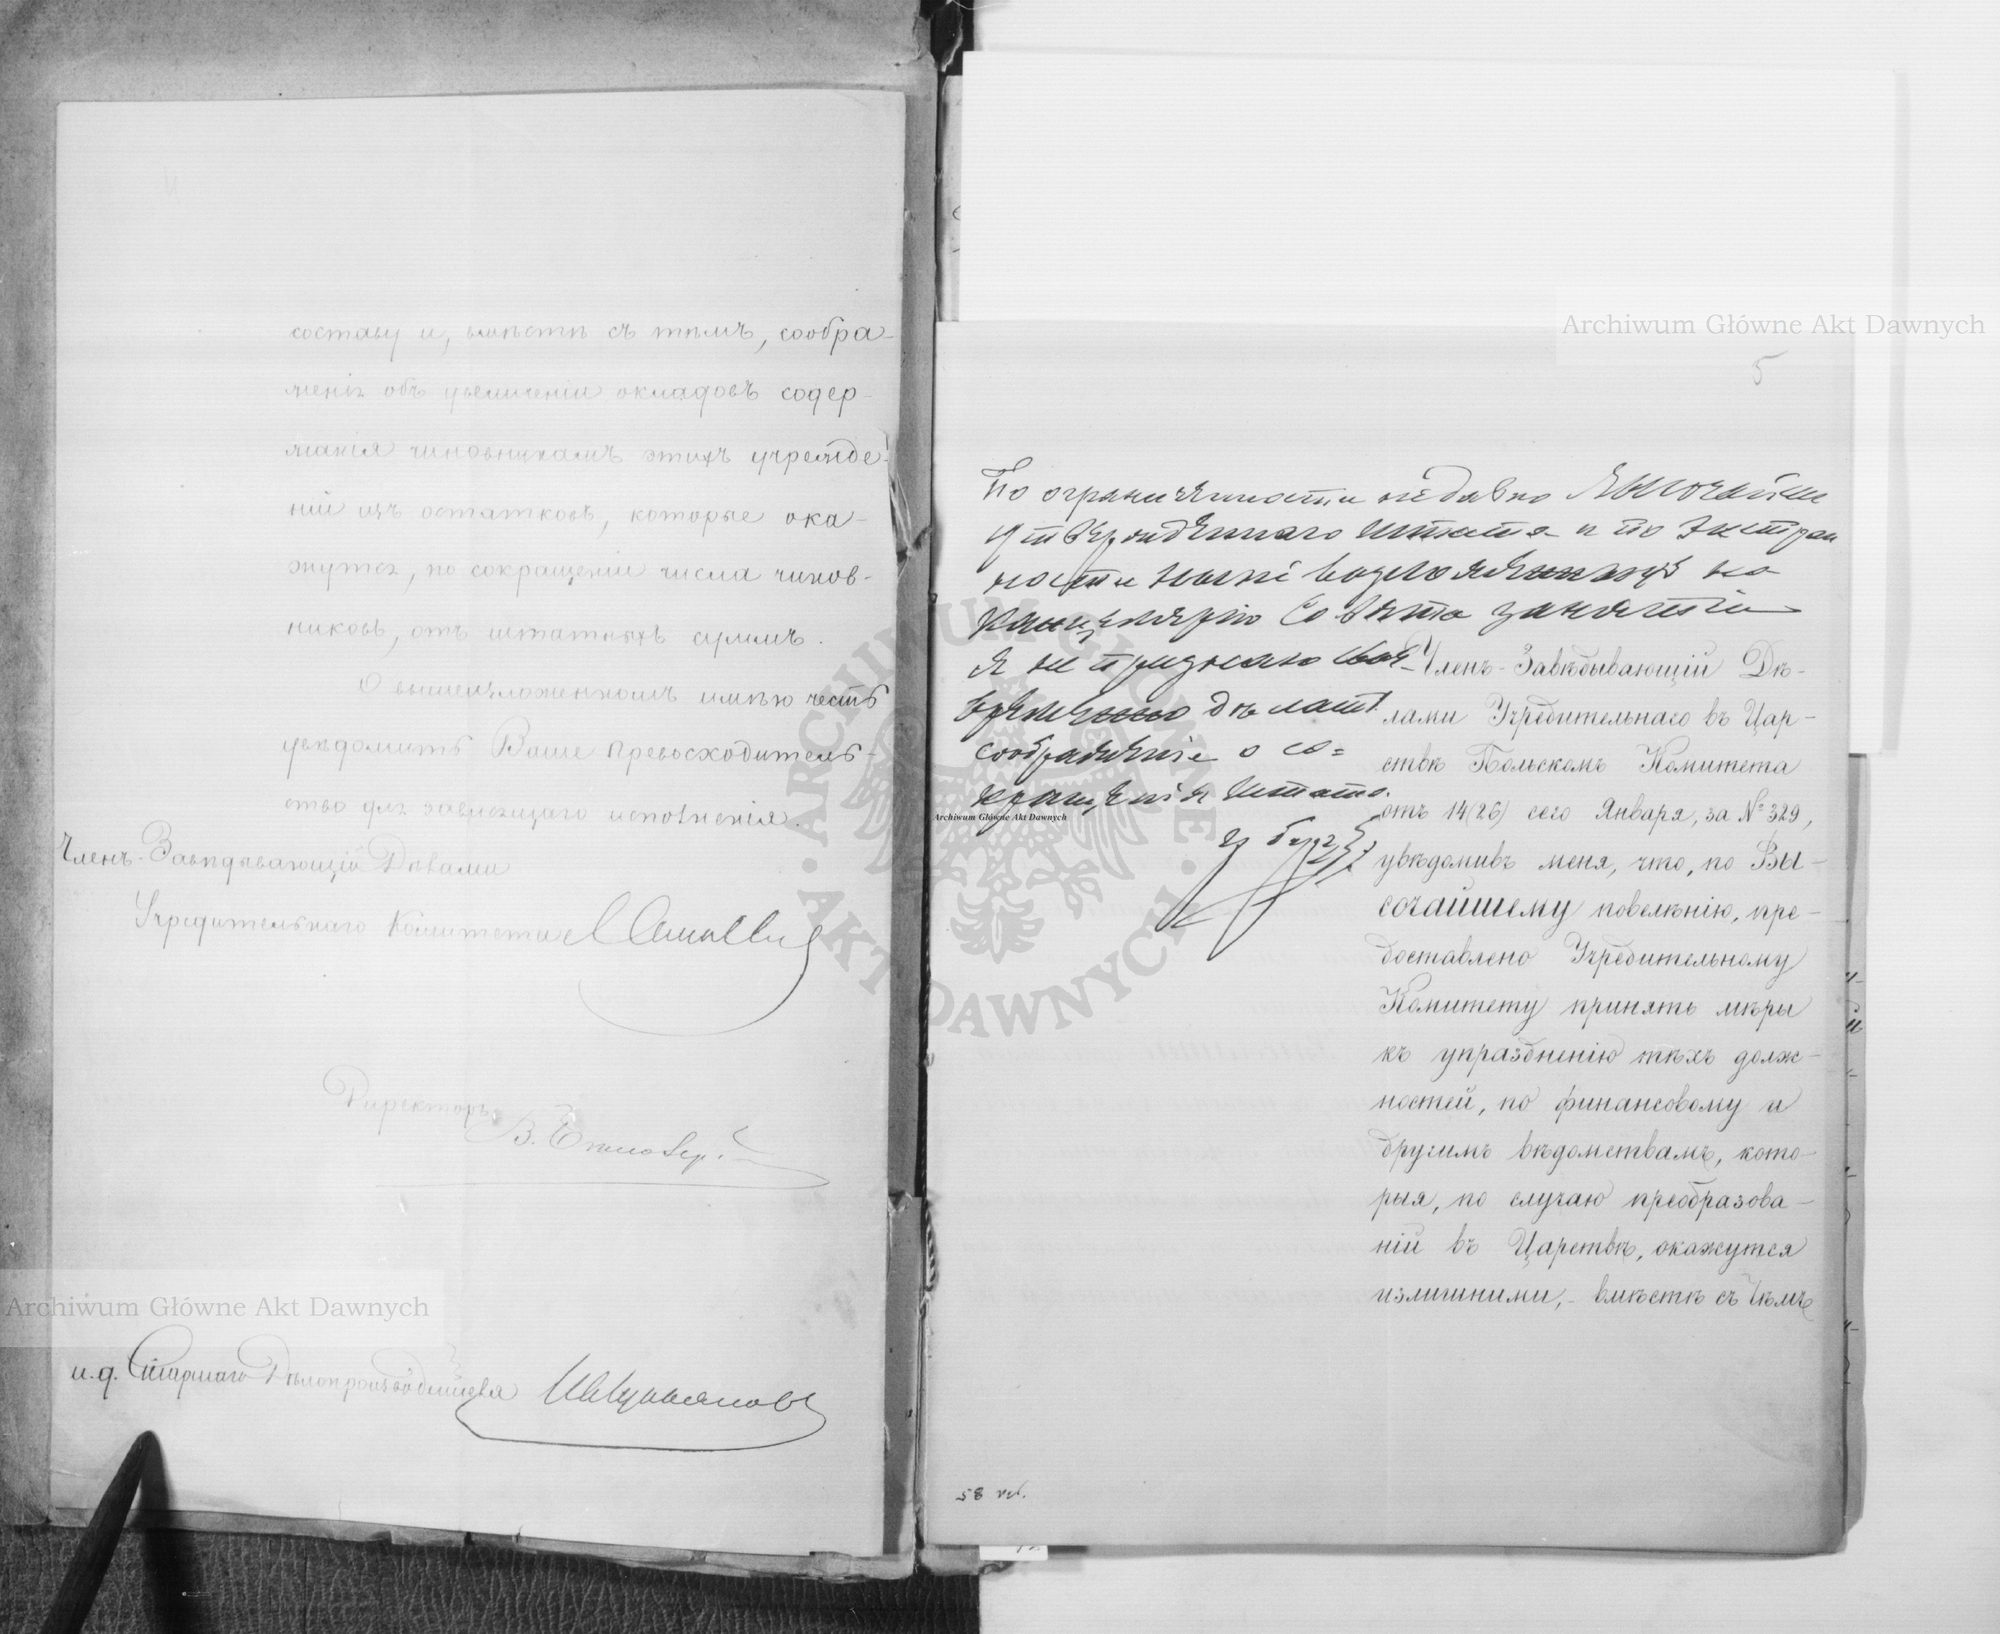 составу и, вмѣстѣ съ тѣмъ, сообра-
женія объ увеличеніи окладовъ содер-
жанія чиновникамъ этихъ учрежде-
ній изъ остатковъ, которые ока-
жутся, по сокращеніи числа чинов-
никовъ, отъ штатныхъ суммъ.
О вышеизложенномъ имѣю честь
увѣдомить Ваше Превосходитель-
ство для зависящаго исполненія.
Членъ-Завѣдывающій Дѣлами
Учредительнаго Комитета
Директоръ
В.
и.д. Старшаго Дѣлопроизводителя
Archiwum Główne Akt Dawnych
5
По ограниченности недавно Высочайше
утвержденнаго штата и по
нынѣ на
Канцелярію Совѣта занятій
я не признаю свое-
временно дѣлать
соображеніе о со=
кращеніи штата.
Членъ-Завѣдывающій Дѣ-
лами Учредительнаго въ Цар-
ствѣ Польскомъ Комитета
отъ 14(26) сего Января, за № 329,
увѣдомивъ меня, что, по Вы-
сочайшему повелѣнію, пре-
доставлено Учредительному
Комитету принять мѣры
къ упраздненію тѣхъ долж-
ностей, по финансовому и
другимъ вѣдомствамъ, кото-
рыя, по случаю преобразова-
ній въ Царствѣ, окажутся
излишними,- вмѣстѣ съ тѣмъ
58
Archiwum Główne Akt Dawnych
ARCHIWUM GŁÓWNE AKT DAWNYCH
Archiwum Główne Akt Dawnych